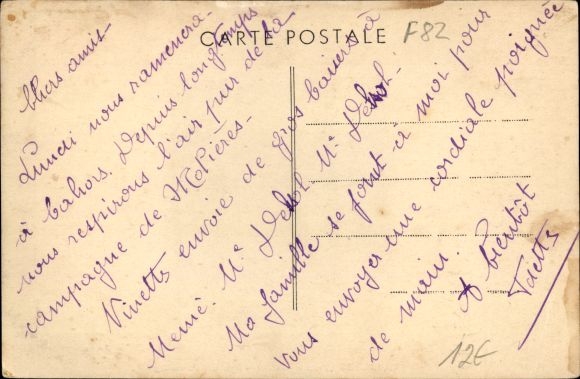 CARTE POSTALE
F82
Chers amis
Lundi nous ramenera
à Cahors. Depuis longtemps
nous respirons l'air pur de la
campagne de Molières.
Ninette envoie de gros baisers à
Mémé. Me
Ma famille se joint à moi pour
vous envoyer une cordiale poignée
de main. A bientôt
12€